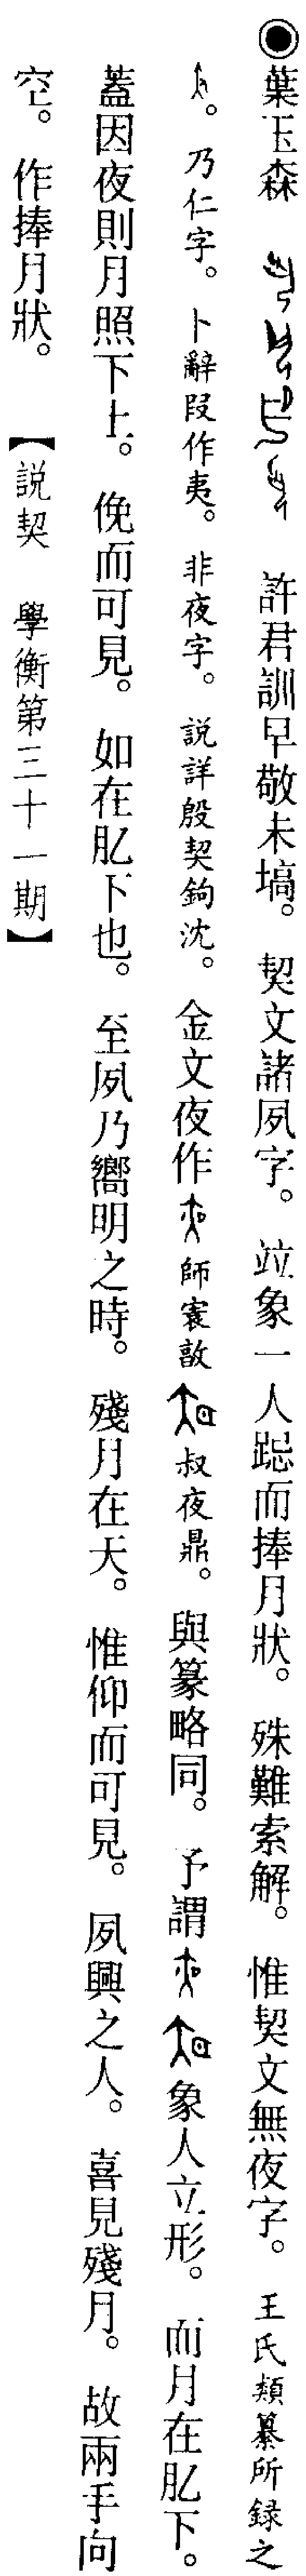 ◉葉玉森　許君訓早敬未塙。契文諸夙字。竝象一人跽而捧月狀。殊難索解。惟契文無夜字。王氏類纂所録之
。乃仁字。卜辭叚作夷。非夜字。説詳殷契鉤沈。金文夜作師㝨敦叔夜鼎。與篆略同。予謂象人立形。而月在肊下。
蓋因夜則月照下土。俛而可見。如在肊下也。至夙乃嚮明之時。殘月在天。惟仰而可見。夙興之人。喜見殘月。故兩手向
空。作捧月狀。【説契　學衡第三十一期】